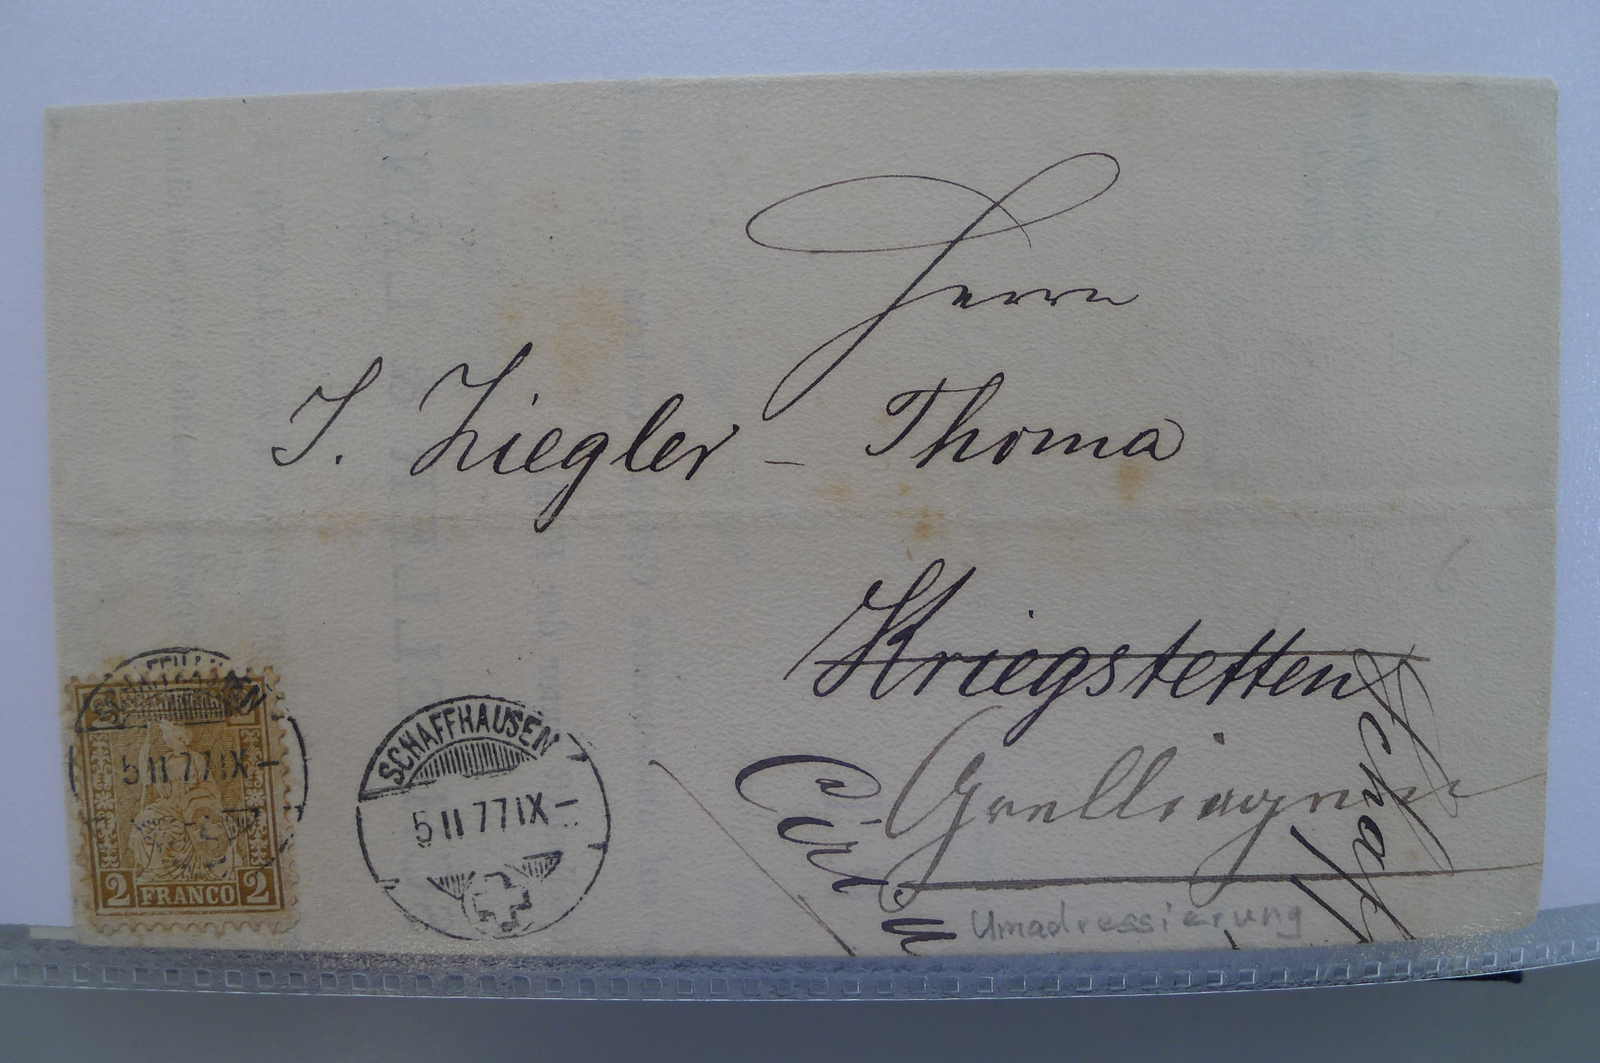 Herrn
J. Ziegler - Thoma
Kriegstetten
Grellingen
Umadressierung
SCHAFFHAUSEN
5 II 77 IX –
SCHAFFHAUSEN
5 II 77 IX –
2 FRANCO 2